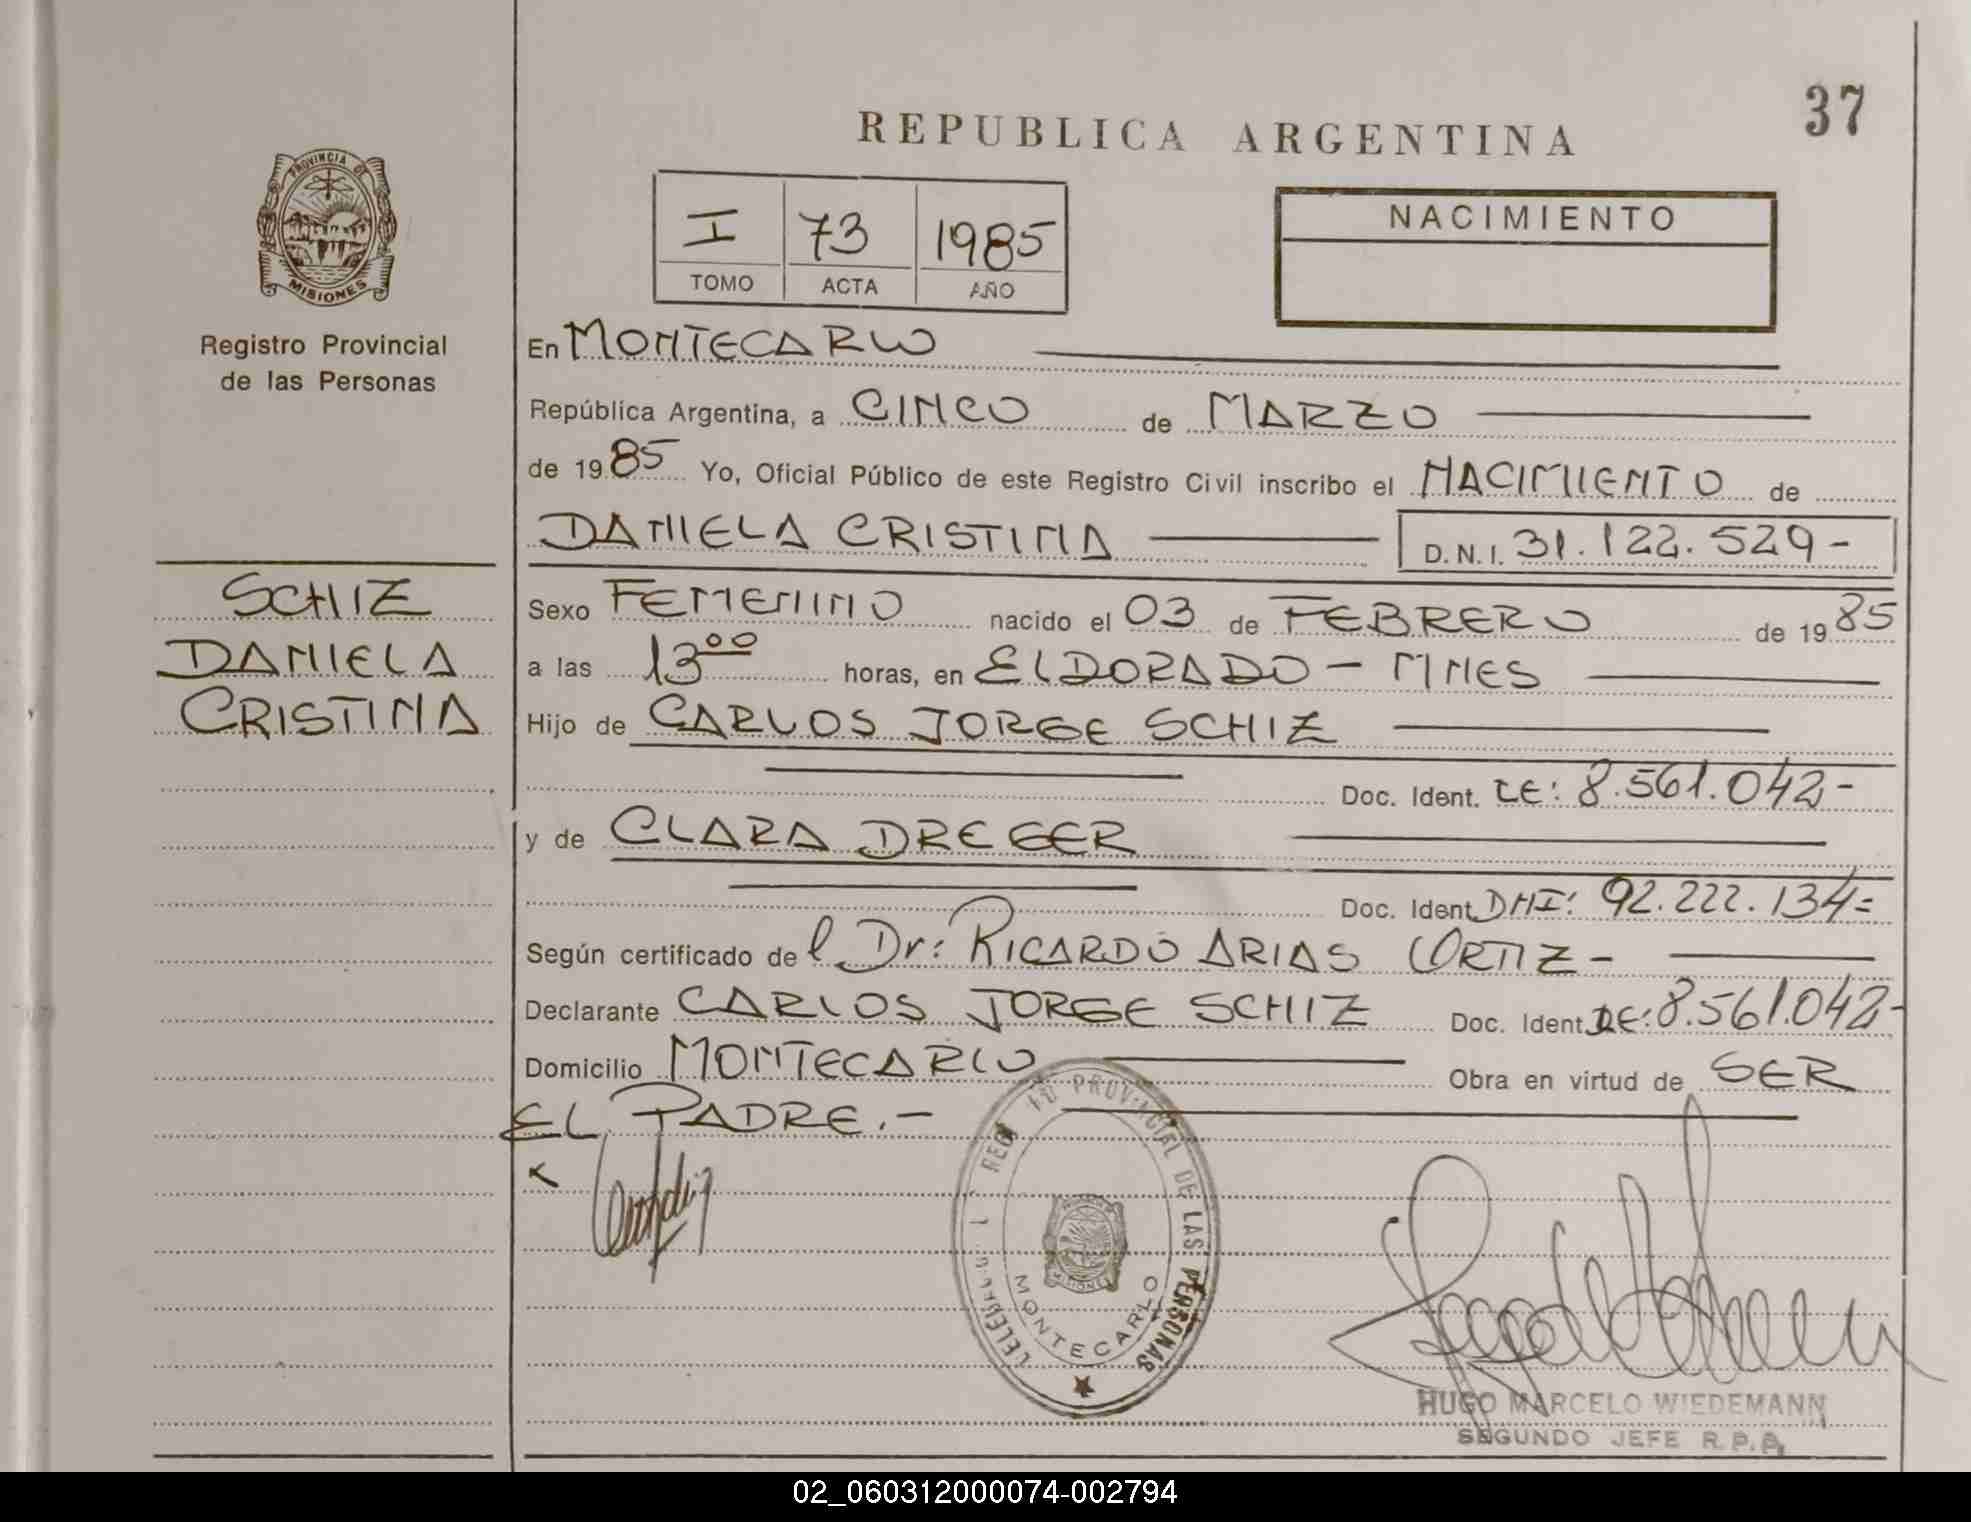 37
REPUBLICA ARGENTINA
PROVINCIA DE
MISIONES
Registro Provincial
de las Personas
I 73 1985
TOMO ACTA AÑO
NACIMIENTO
En MONTECARLO
República Argentina, a CINCO de MARZO
de 1985 Yo, Oficial Público de este Registro Civil inscribo el NACIMIENTO de
DANIELA CRISTINA D.N.I. 31.122.529-
SCHIZ
DANIELA
CRISTINA
Sexo FEMENINO nacido el 03 de FEBRERO de 1985
a las 13 00 horas, en ELDORADO - MNES
Hijo de CARLOS JORGE SCHIZ
Doc. Ident. LE: 8.561.042-
y de CLARA DREGER
Doc. Ident DNI: 92.222.134=
Según certificado de l Dr: RICARDO ARIAS ORTIZ-
Declarante CARLOS JORGE SCHIZ Doc. Ident LE: 8.561.042-
Domicilio MONTECARLO Obra en virtud de SER
EL PADRE.-
PROVINCIAL DE LAS PERSONAS
MISIONES
MONTECARLO
HUGO MARCELO WIEDEMANN
SEGUNDO JEFE R.P.P.
02_060312000074-002794